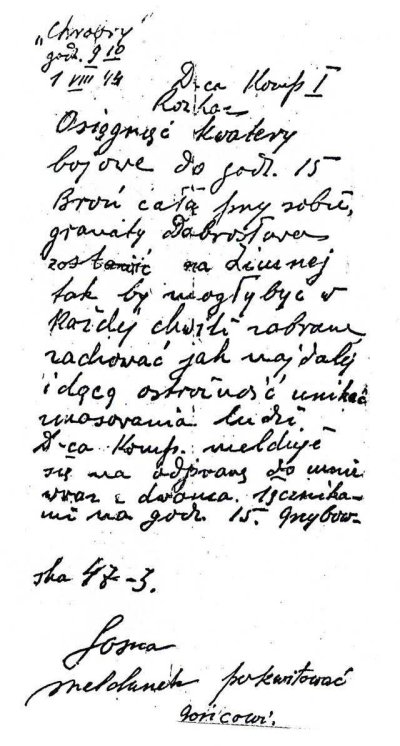 „Chrobry"
godz. 9 10
1 VIII 44
D-ca Komp I
Rozkaz
Osiągnąć kwatery
bojowe do godz. 15
Broń całą przy sobie,
granaty Dobrosława
zostawić na Ziemnej
tak by mogły być w
każdej chwili zabrane
zachować jak najdalej
idącą ostrożność unikać
masowania ludzi
D-ca Komp. melduje
się na odprawę do mnie
wraz z dwoma łącznika-
mi na godz. 15. Grzybow-
ska 47-3.
Sosna
meldunek pokwitować
gońcowi.